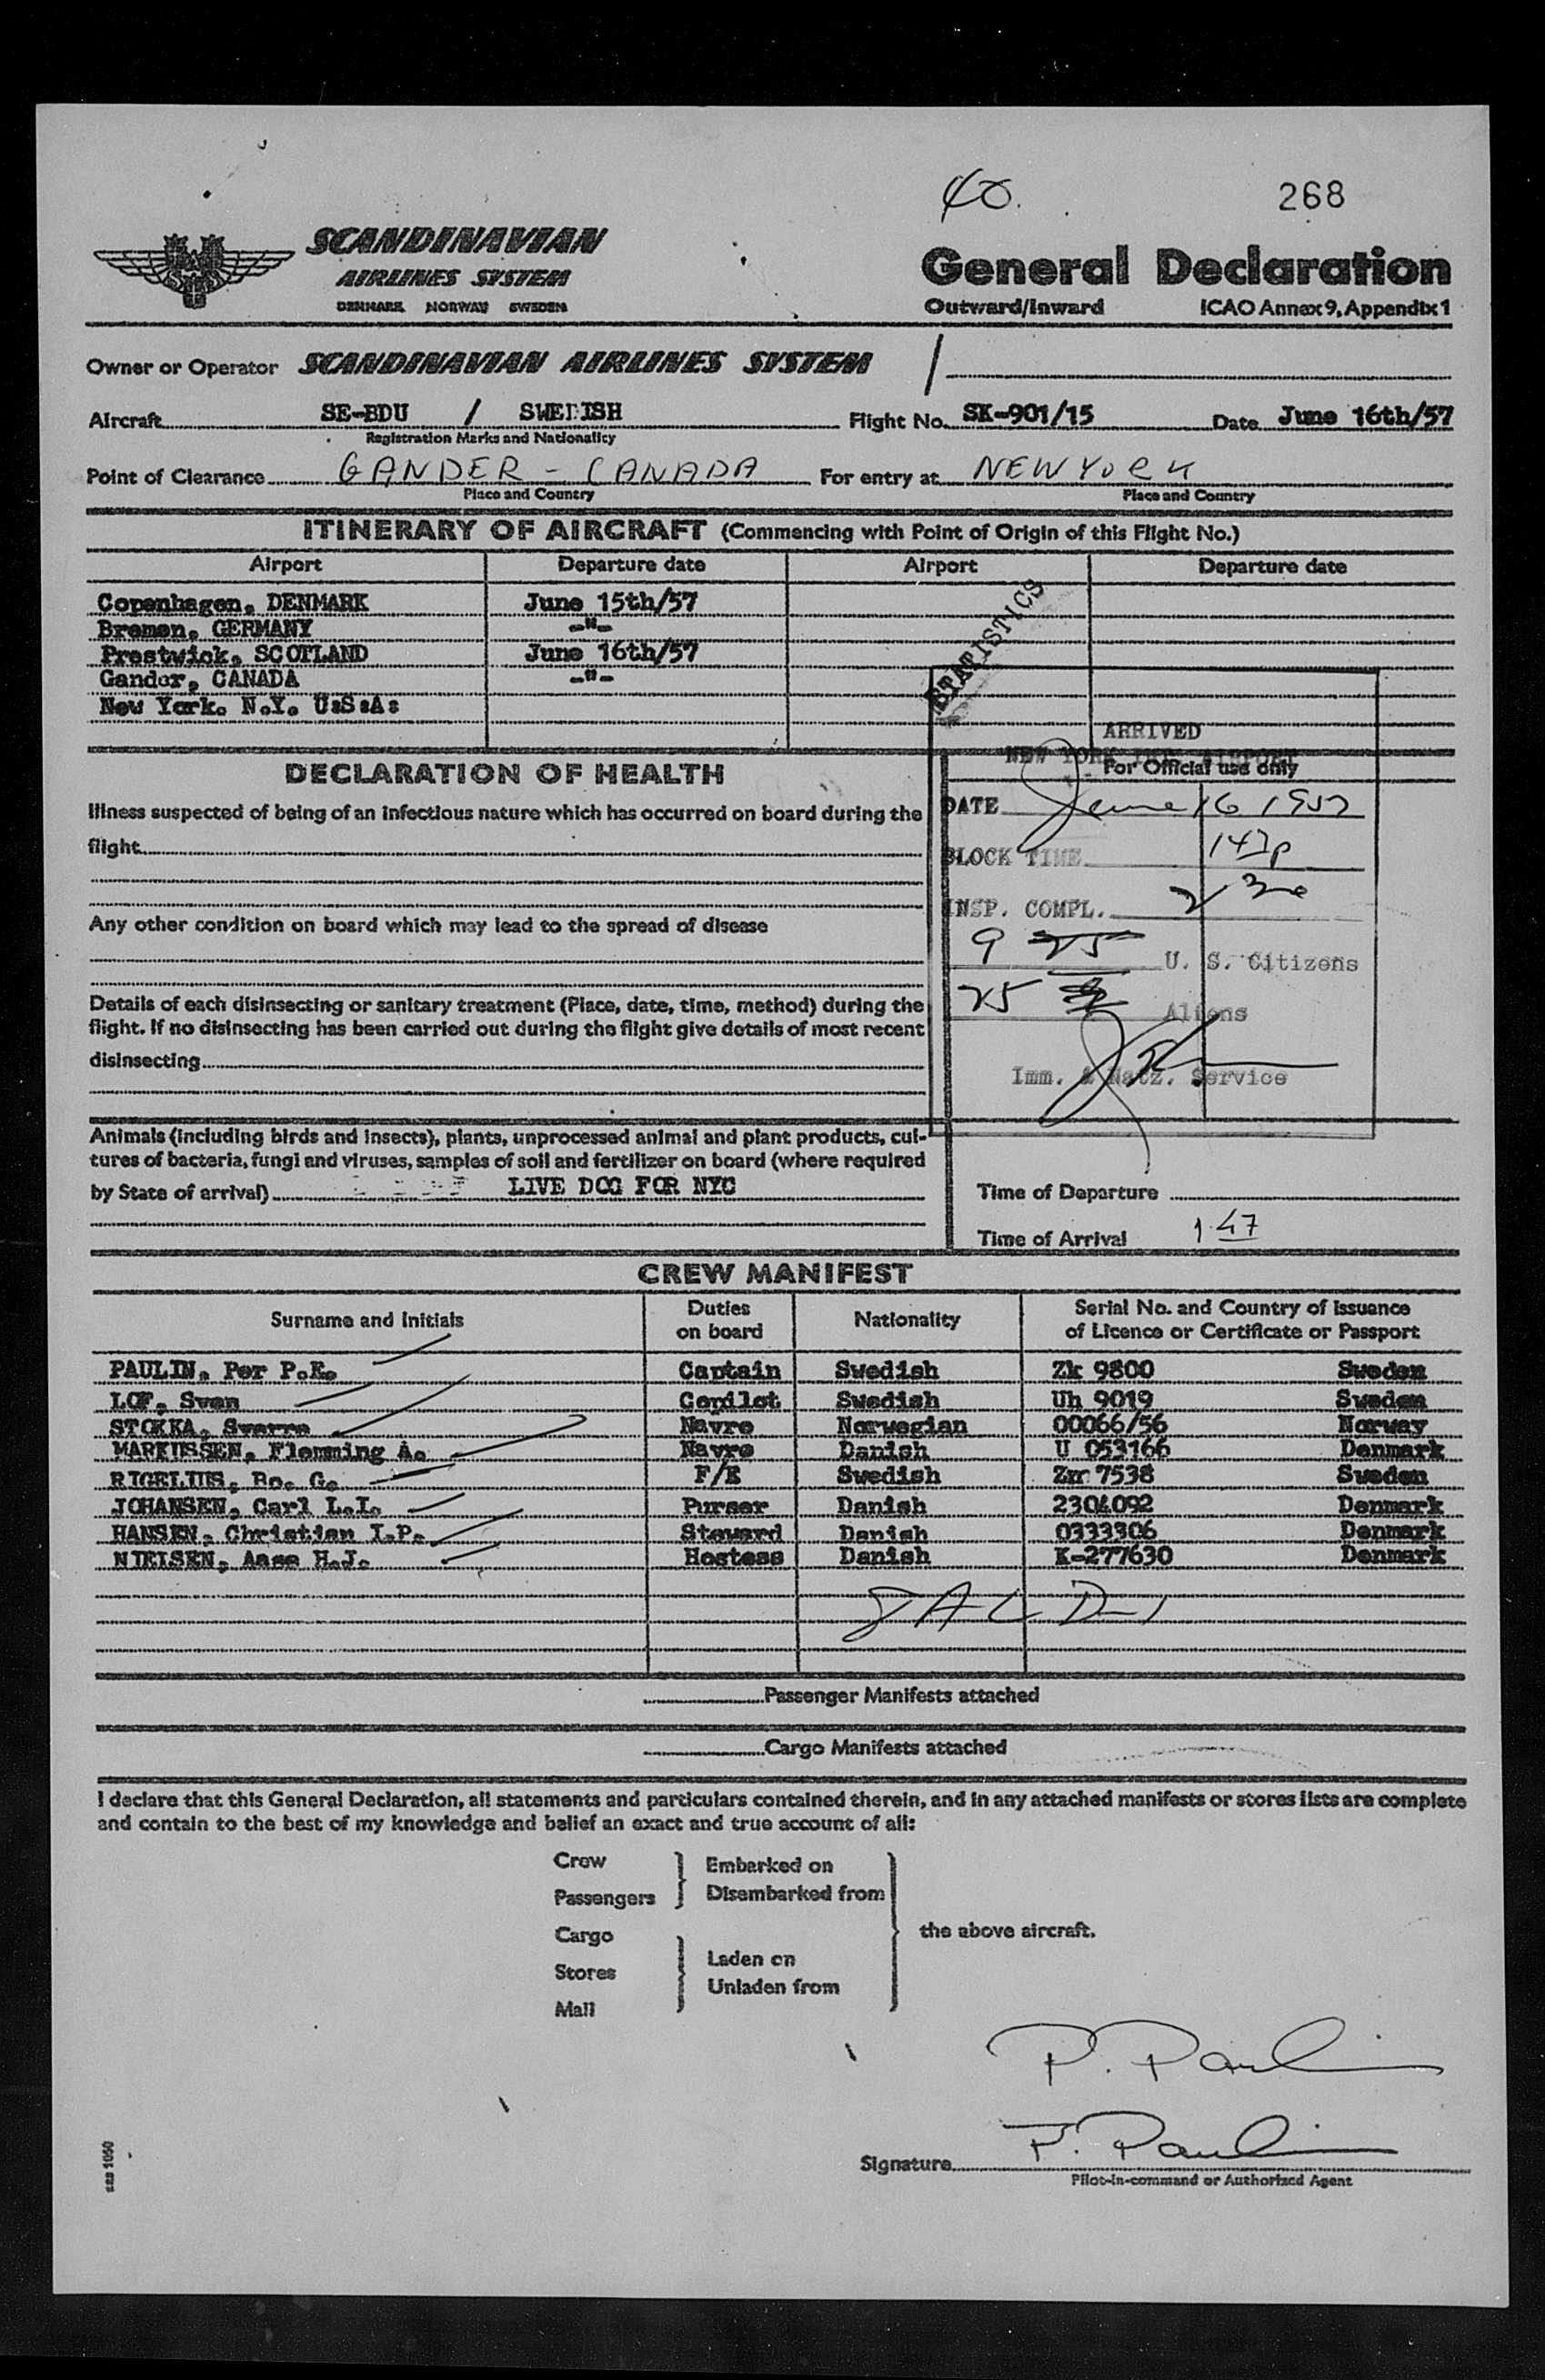 40.
268
SCANDINAVIAN
AIRLINES SYSTEM
DENMARK NORWAY SWEDEN
General Declaration
Outward/Inward ICAO Annex 9, Appendix 1
Owner or Operator SCANDINAVIAN AIRLINES SYSTEM /
Aircraft SE-BDU / SWEDISH Flight No. SK-901/15 Date June 16th/57
Registration Marks and Nationality
Point of Clearance GANDER - CANADA For entry at NEW YORK
Place and Country Place and Country
ITINERARY OF AIRCRAFT (Commencing with Point of Origin of this Flight No.)
Airport Departure date Airport Departure date
Copenhagen, DENMARK June 15th/57
Bremen, GERMANY -"-
Prestwick, SCOTLAND June 16th/57
Gander, CANADA -"-
New York. N.Y. U:S:A:
STATISTICS
ARRIVED
NEW YORK INT. AIRPORT
For Official use only
DECLARATION OF HEALTH
Illness suspected of being of an infectious nature which has occurred on board during the
flight
DATE June 16 1957
BLOCK TIME 147p
INSP. COMPL. 2
Any other condition on board which may lead to the spread of disease
9 25 U. S. Citizens
Details of each disinsecting or sanitary treatment (Place, date, time, method) during the
flight. If no disinsecting has been carried out during the flight give details of most recent
disinsecting
25 Aliens
Imm. & Natz. Service
Animals (including birds and insects), plants, unprocessed animal and plant products, cul-
tures of bacteria, fungi and viruses, samples of soil and fertilizer on board (where required
by State of arrival) LIVE DOG FOR NYC
Time of Departure
Time of Arrival 1.47
CREW MANIFEST
Surname and Initials Duties on board Nationality Serial No. and Country of Issuance of Licence or Certificate or Passport
PAULIN, Per P.E. Captain Swedish Zk 9800 Sweden
LOF, Sven Copilot Swedish Uh 9019 Sweden
STOKKA, Sverre Navro Norwegian 00066/56 Norway
MARKUSSEN, Flemming A. Navro Danish U 053166 Denmark
RIGELIUS, Bo. G. F/E Swedish Zm 7538 Sweden
JOHANSEN, Carl L.I. Purser Danish 2304092 Denmark
HANSEN, Christian I.P. Steward Danish 0333306 Denmark
NIELSEN, Aase H.J. Hostess Danish K-277630 Denmark
8 A L D-1
Passenger Manifests attached
Cargo Manifests attached
I declare that this General Declaration, all statements and particulars contained therein, and in any attached manifests or stores lists are complete
and contain to the best of my knowledge and belief an exact and true account of all:
Crew
Passengers
Embarked on
Disembarked from
Cargo
Stores
Mail
Laden on
Unladen from
the above aircraft.
P. Paulin
Signature P. Paulin
Pilot-in-command or Authorized Agent
sas 1050